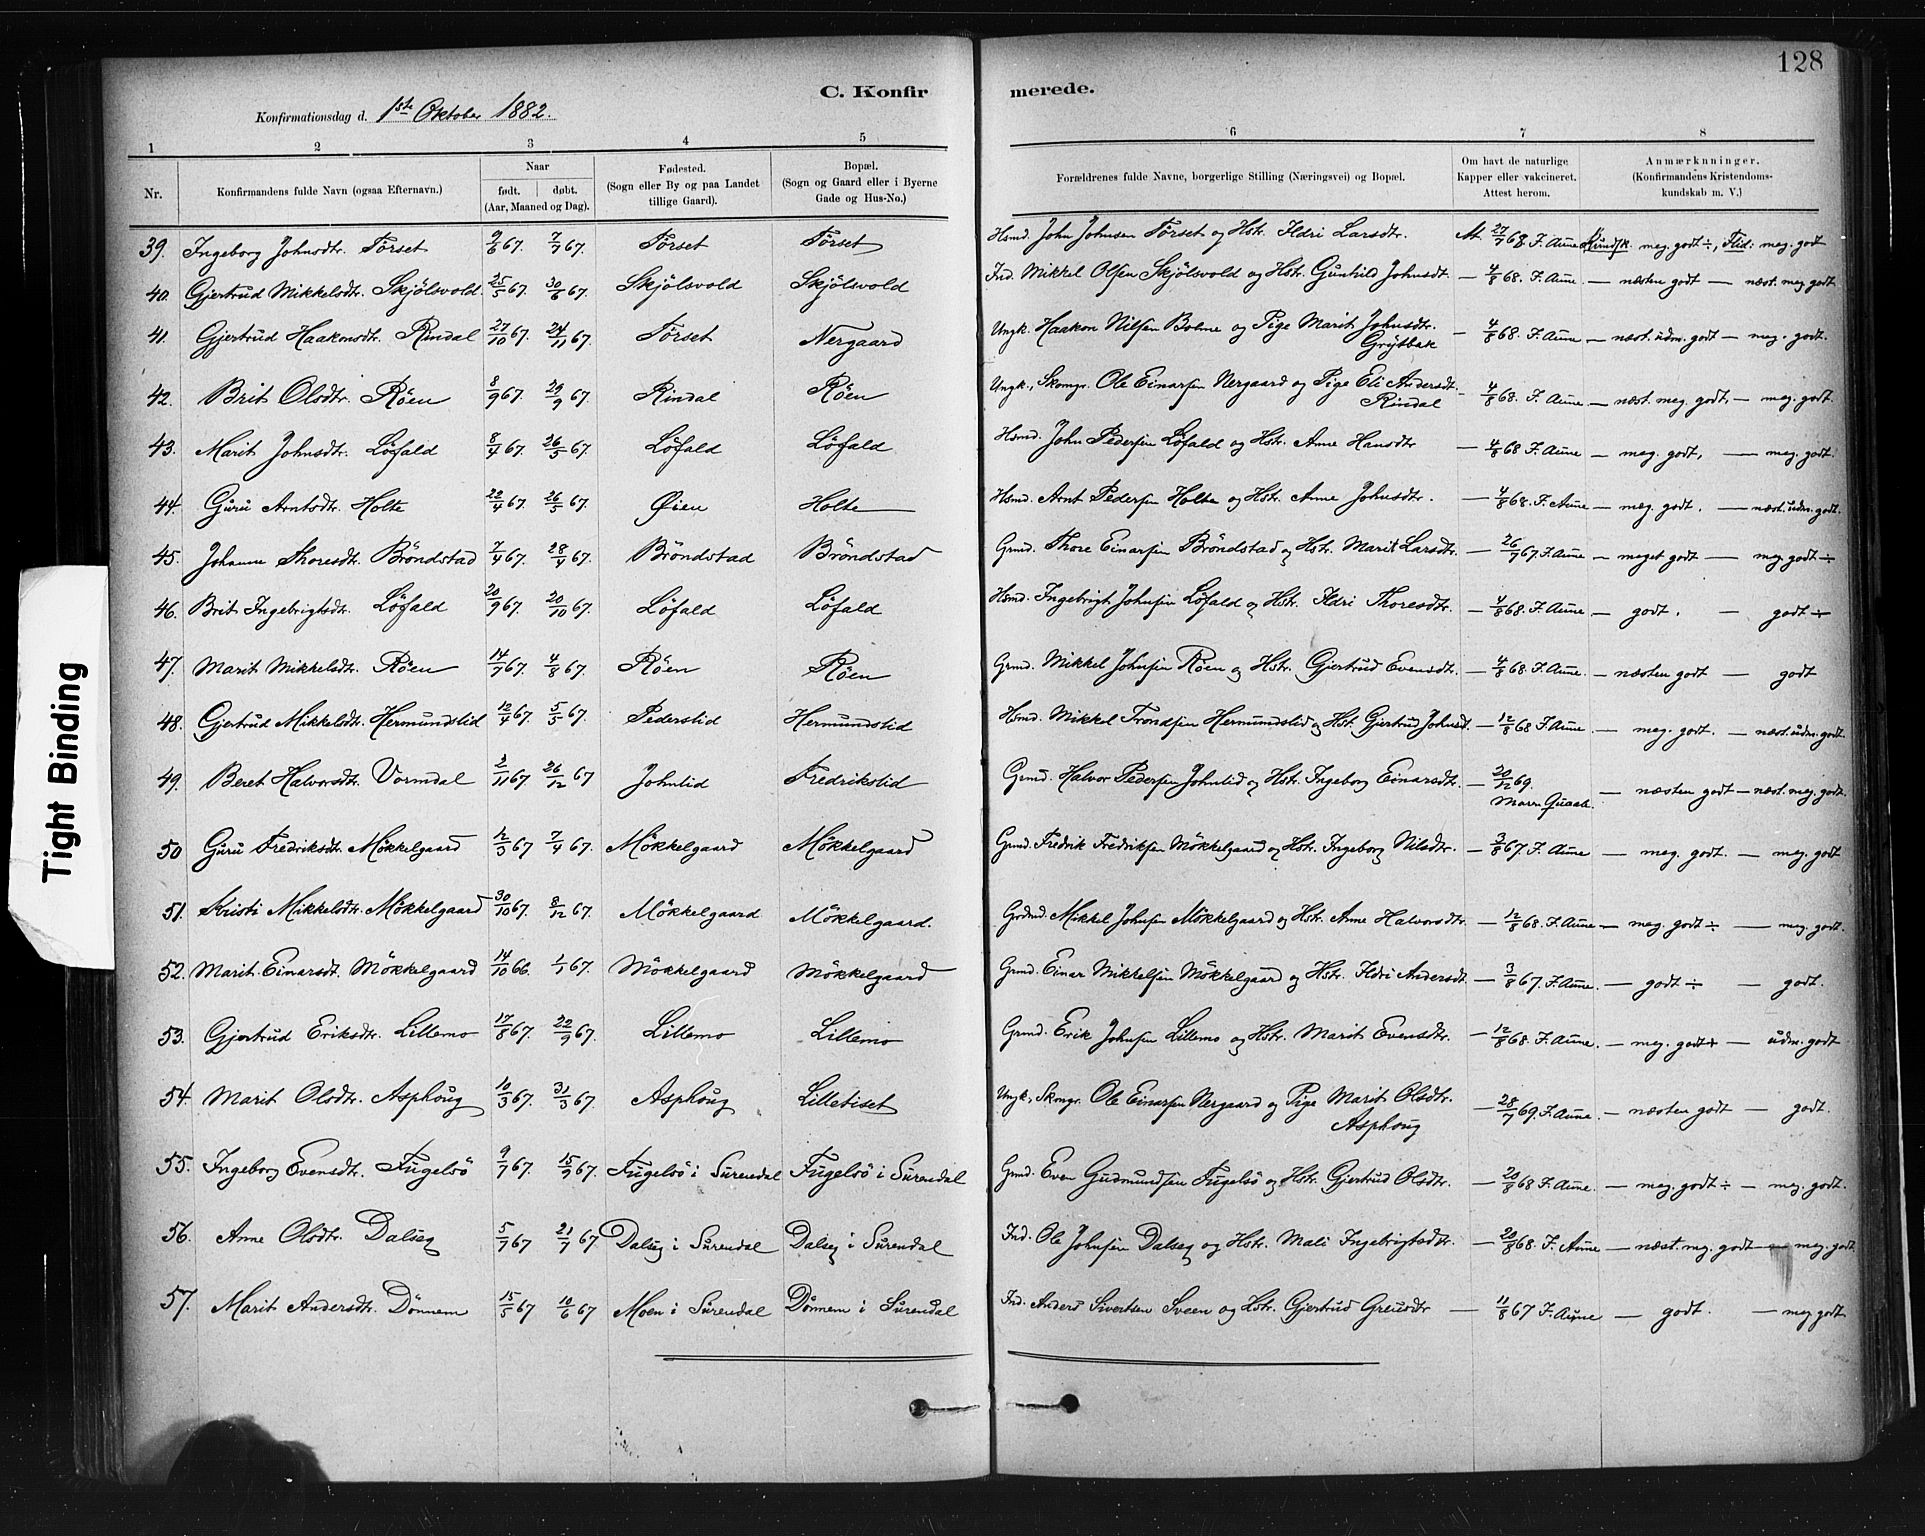 128
C. Konfirmerede.
Konfirmationsdag d. 1ste Oktober 1882.
1 2 3 4 5 6 7 8
Nr. Konfirmandens fulde Navn (ogsaa Efternavn.) Naar født. døbt. (Aar, Maaned og Dag). Fødested. (Sogn eller By og paa Landet tillige Gaard). Bopæl. (Sogn og Gaard eller i Byerne Gade og Hus-No.) Forældrenes fulde Navne, borgerlige Stilling (Næringsvei) og Bopæl. Om havt de naturlige Kapper eller vakcineret. Attest herom. Anmærkninger. (Konfirmandens Kristendomskundskab m. V.)
39. Ingeborg Johnsdtr. Törset 9/6 67. 7/7 67. Törset Törset Hsmd. John Johnsen Törset og Hstr. Ildri Larsdtr. At. 27/7 68 F. Aune Kundsk. meg. godt ÷, Flid: meg. godt
40. Gjertrud Mikkelsdtr. Skjölsvold. 25/5 67. 30/6 67. Skjölsvold Skjölsvold Ind. Mikkel Olsen Skjölsvold og Hstr. Gunhild Johnsdt. — 4/8 68. F. Aune. — næsten godt — næst. meg. godt
41. Gjertrud Haakonsdtr. Rindal 27/10 67. 24/11 67. Törset Nergaard Ungk. Haakon Nilsen Bolme og Pige Marit Johnsdtr. Grytbak — 4/8 68. F. Aune — næst. udm. godt — meg. godt.
42. Brit Olsdtr. Röen 8/9 67. 29/9 67. Rindal Röen Ungk., Skomgr. Ole Einarsen Nergaard og Pige Eli Andersdt. Rindal — 4/8 68. F. Aune — næst. meg. godt, — meg. godt.
43. Marit Johnsdtr. Löfald 8/4 67. 26/5 67. Löfald Löfald Hsmd. John Pedersen Löfald og Hstr. Anne Hansdtr — 4/8 68 F. Aune — meg. godt, — meg. godt.
44. Guru Arntsdtr. Holte 22/4 67. 26/5 67. Øien Holte Hsmd. Arnt Pedersen Holte og Hstr. Anne Johnsdtr. — 4/8 68. F. Aune — meg. godt. — næst. udm. godt.
45. Johanne Thoresdtr. Bröndstad 7/4 67. 28/4 67. Bröndstad Bröndstad Grmd. Thore Einarsen Bröndstad og Hstr. Marit Larsdtr. — 26/7 67. F. Aune — meget godt — meg. godt ÷
46. Brit Ingebrigtsdtr. Löfald 20/9 67. 20/10 67. Löfald Löfald Hsmd. Ingebrigt Johnsen Löfald og Hstr. Ildri Thoresdtr. — 4/8 68. F. Aune — godt. — godt ÷
47. Marit Mikkelsdtr. Röen 14/7 67. 4/8 67. Röen Röen Grmd. Mikkel Johnsen Röen og Hstr. Gjertrud Evensdtr. — 4/8 68. F. Aune. — næsten godt — godt
48. Gjertrud Mikkelsdtr. Hermundslid 12/4 67. 5/5 67. Pederslid Hermundslid Hsmd. Mikkel Trondsen Hermundslid og Hst. Gjertrud Johnsdt. — 12/8 68 F. Aune. — meg. godt. — næst. udm. godt.
49. Beret Halvorsdtr. Vormdal 2/11 67. 26/12 67 Johnlid Fredrikslid Grmd. Halvor Pedersen Johnlid og Hstr. Ingeborg Einarsdtr. — 20/12 69. — næsten godt — næst. meg. godt.
50 Guru Fredriksdtr. Mökkelgaard 12/3 67 7/4 67 Mökkelgaard Mökkelgaard Grmd. Fredrik Fredriksen Mökkelgaard og Hstr. Ingeborg Nilsdtr. — 3/8 67. F. Aune — meg. godt. — meg. godt
51. Kristi Mikkelsdtr. Mökkelgaard 30/10 67. 8/12 67. Mökkelgaard Mökkelgaard. Grdmd. Mikkel Johnsen Mökkelgaard og Hstr. Anne Halvorsdtr. — 12/8 68. F. Aune — meg. godt ÷ — meg. godt.
52. Marit Einarsdt. Mökkelgaard 14/10 66. 1/1 67. Mökkelgaard Mökkelgaard Grmd. Einar Mikkelsen Mökkelgaard og Hstr. Ildri Andersdt. — 3/8 67. F. Aune. — godt ÷ — godt.
53. Gjertrud Eriksdtr. Lillemo 17/8 67. 22/9 67. Lillemo Lillemo Grmd. Erik Johnsen Lillemo og Hstr. Marit Evensdtr. — 12/8 68. F. Aune. — meg. godt+ — udm. godt
54. Marit Olsdtr. Asphoug 10/3 67. 31/3 67. Asphoug Lilletiset Ungk., Skomgr. Ole Einarsen Nergaard og Pige Marit Olsdtr. Asphoug — 28/7 69. F. Aune. — næsten godt — godt.
55. Ingeborg Evensdt. Fugelsö 9/7 67. 15/9 67. Fugelsö i Surendal Fugelsö i Surendal Grmd. Even Gudmundsen Fugelsö og Hstr. Gjertrud Olsdtr. — 20/8 68 F. Aune. — meg. godt ÷ — meg. godt.
56. Anne Olsdtr. Dalseg 5/7 67 21/7 67 Dalseg i Surendal Dalseg i Surendal Ind. Ole Johnsen Dalseg og Hstr. Mali Ingebrigtsdtr. — 20/8 68. F. Aune — næst. meg. godt — meg. godt.
57. Marit Andersdtr. Dönnem 15/5 67 10/6 67 Moen i Surendal Dönnem i Surendal Ind. Anders Sivertsen Sveen og Hstr. Gjertrud Greisdtr — 11/8 67 F. Aune — godt. — meg. godt
Tight Binding